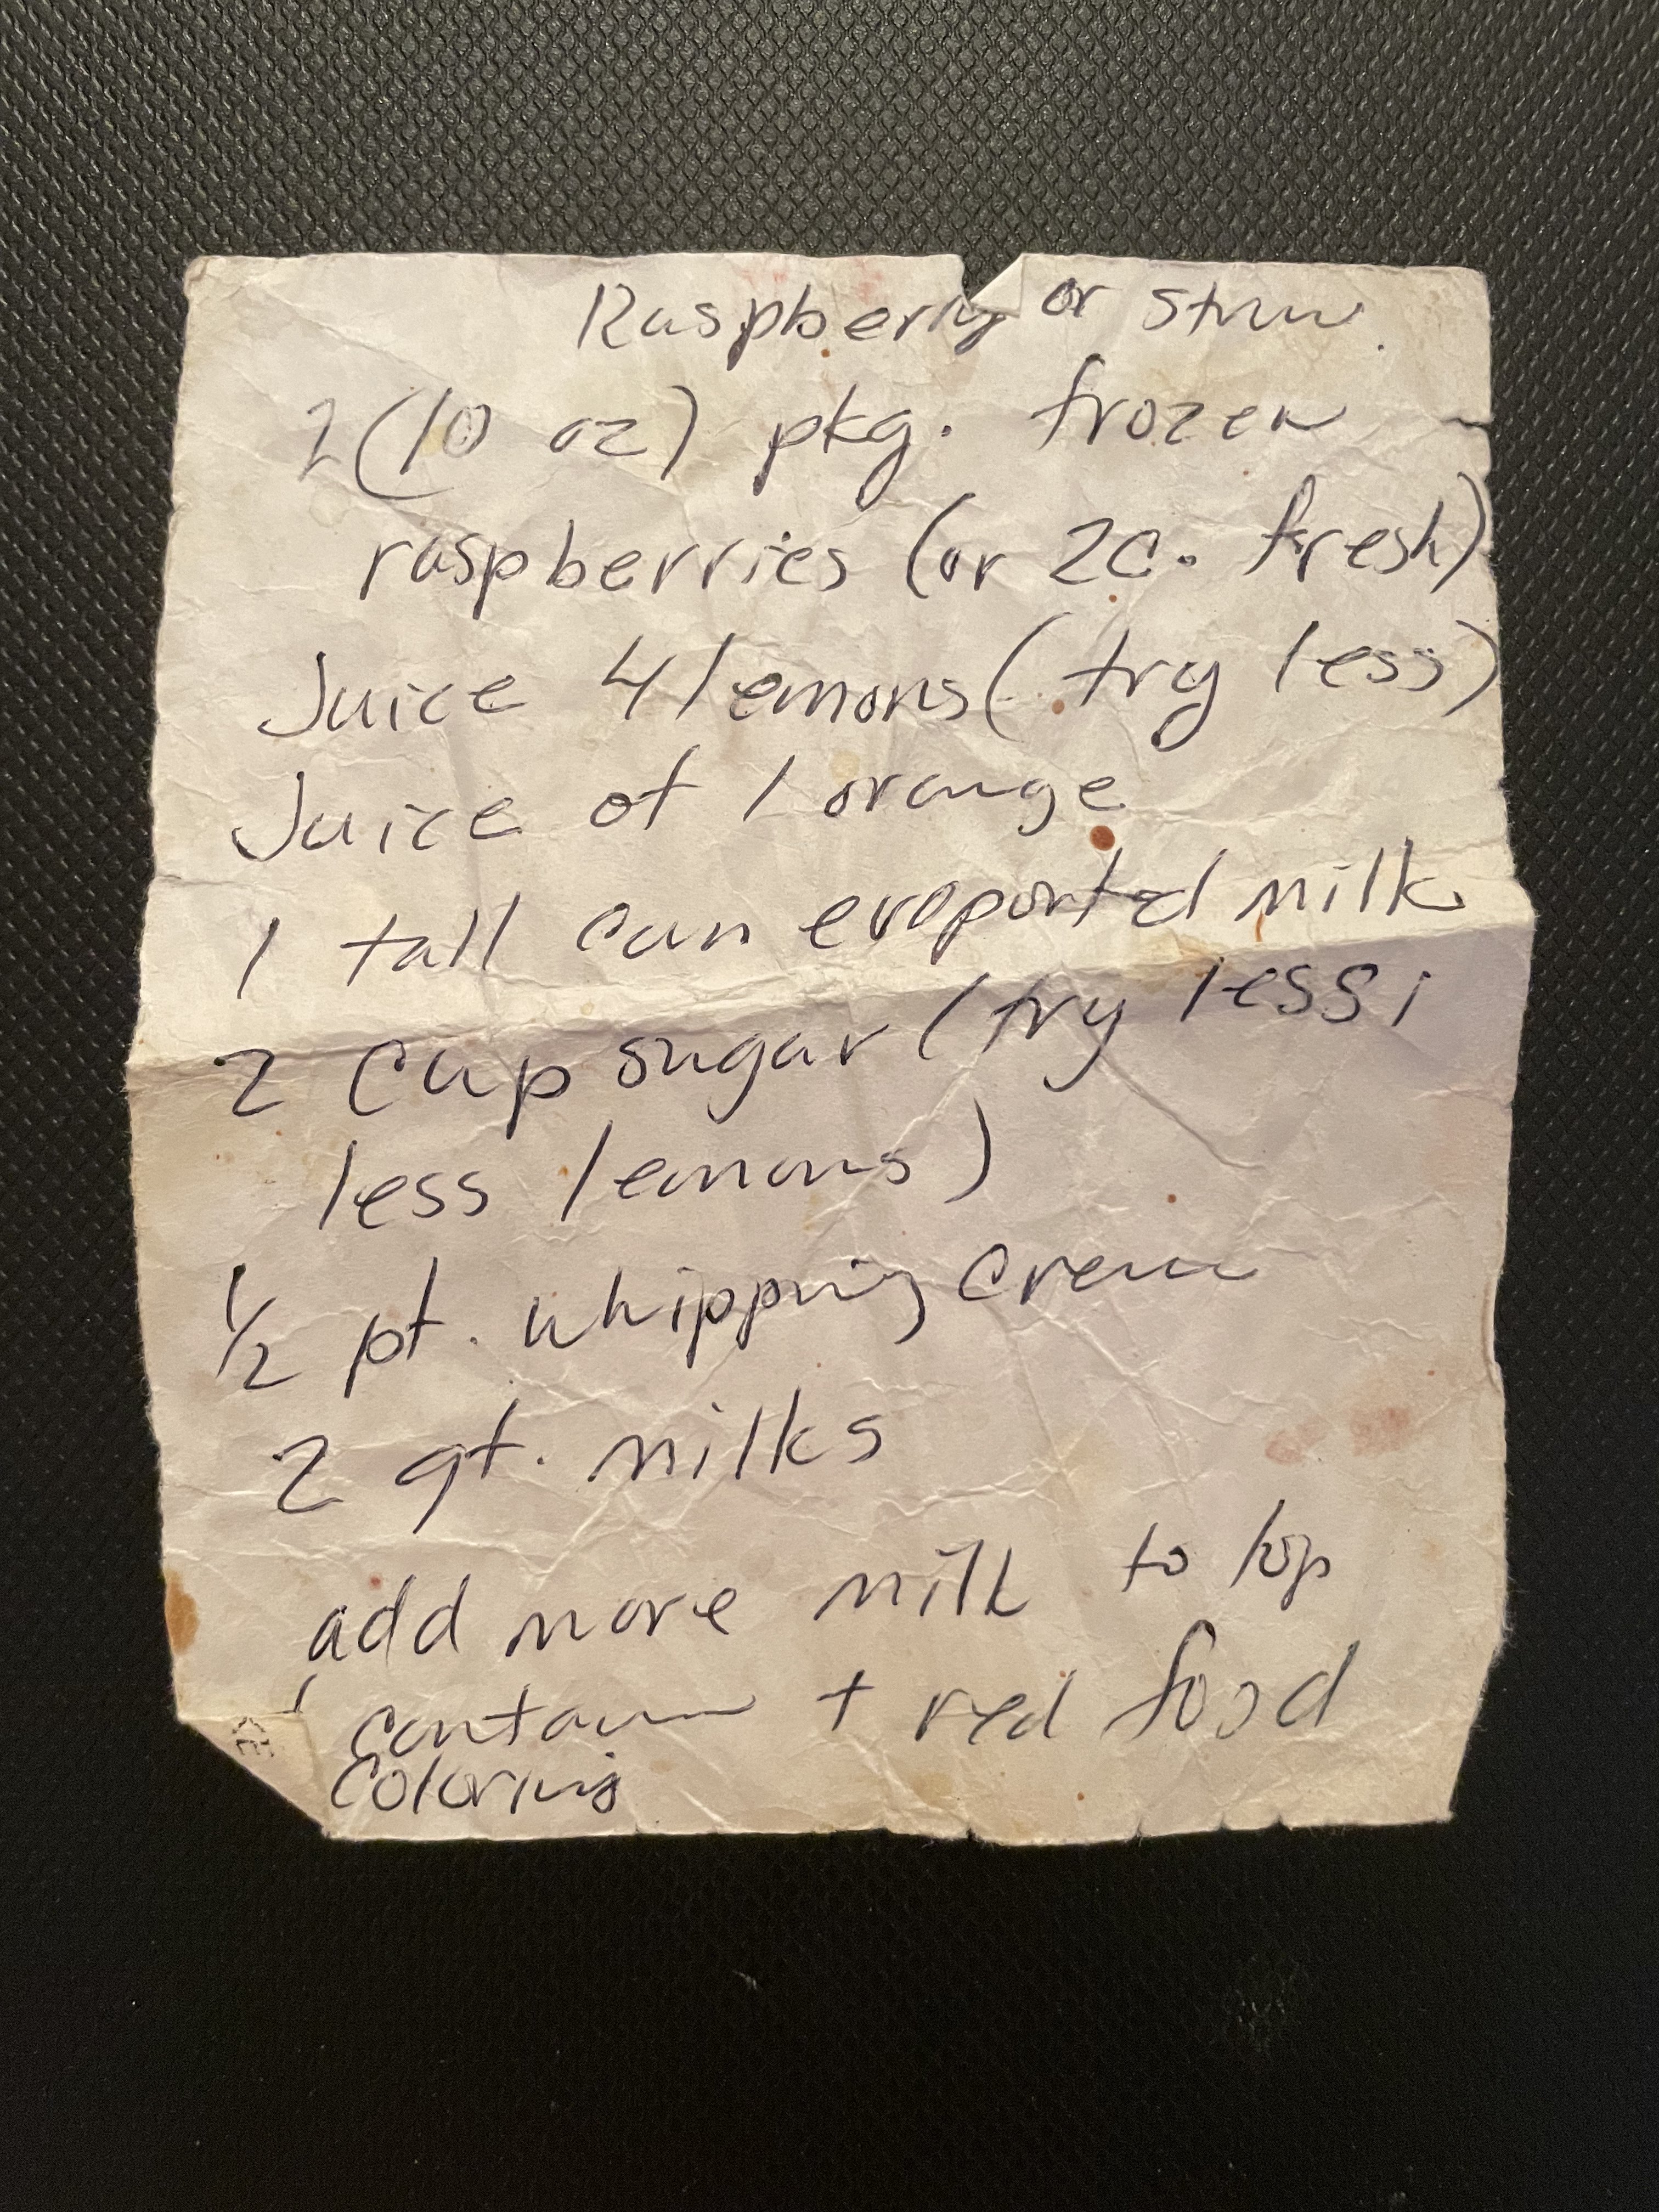 Raspberry or Straw.
2 (10 oz) pkg. frozen
raspberries (or 2c. fresh)
Juice 4 lemons (try less)
Juice of 1 orange
1 tall can evaporated milk
2 cup sugar (try less;
less lemons)
1/2 pt. whipping cream
2 qt. milks
add more milk to top
container + red food
coloring